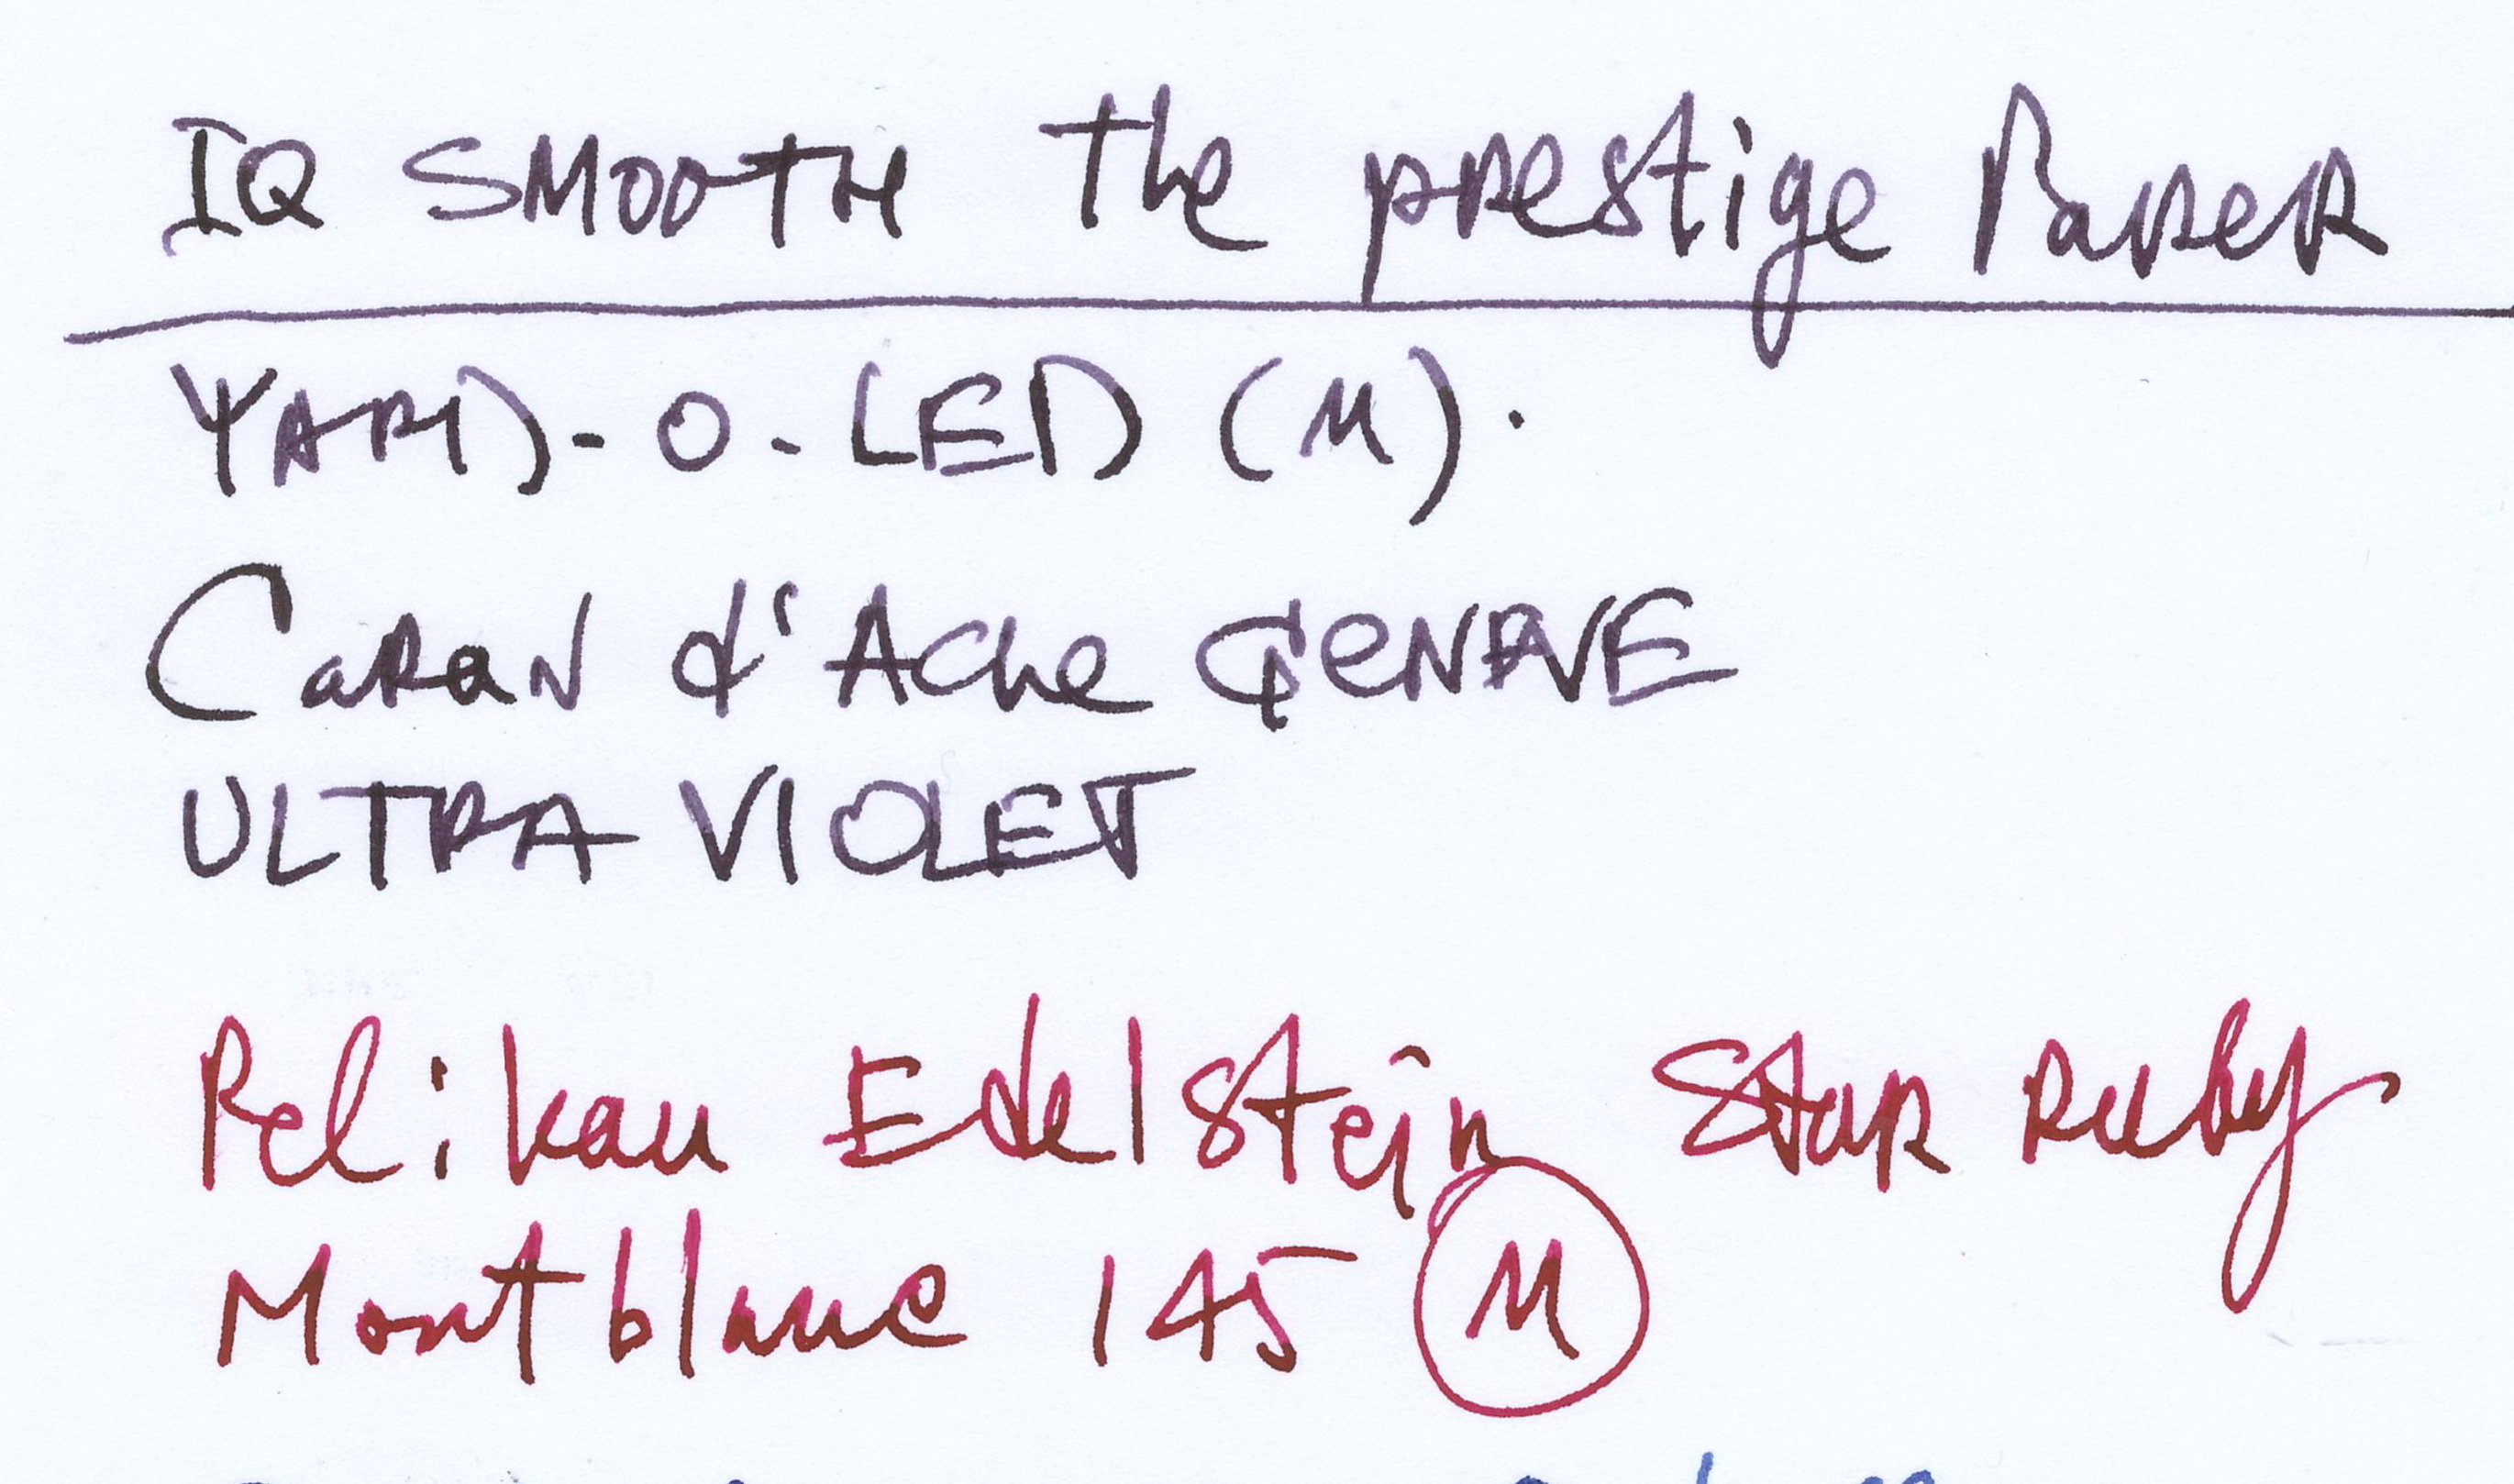 IQ SMOOTH The prestige Paper
YARD-O-LED (M).
Caran d'Ache GENEVE
ULTRA VIOLET
Pelikan Edelstein Star Ruby
Montblanc 145 M